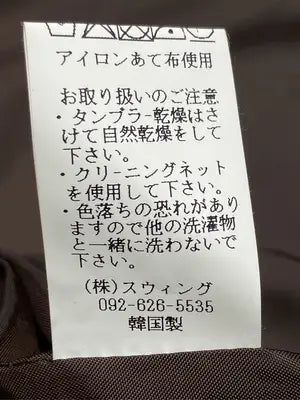 アイロンあて布使用
お取り扱いのご注意
・タンブラー乾燥はさ
けて自然乾燥をして
下さい。
・クリーニングネット
を使用して下さい。
・色落ちの恐れがあり
ますので他の洗濯物
と一緒に洗わないで
下さい。
(株)スウィング
092-626-5535
韓国製